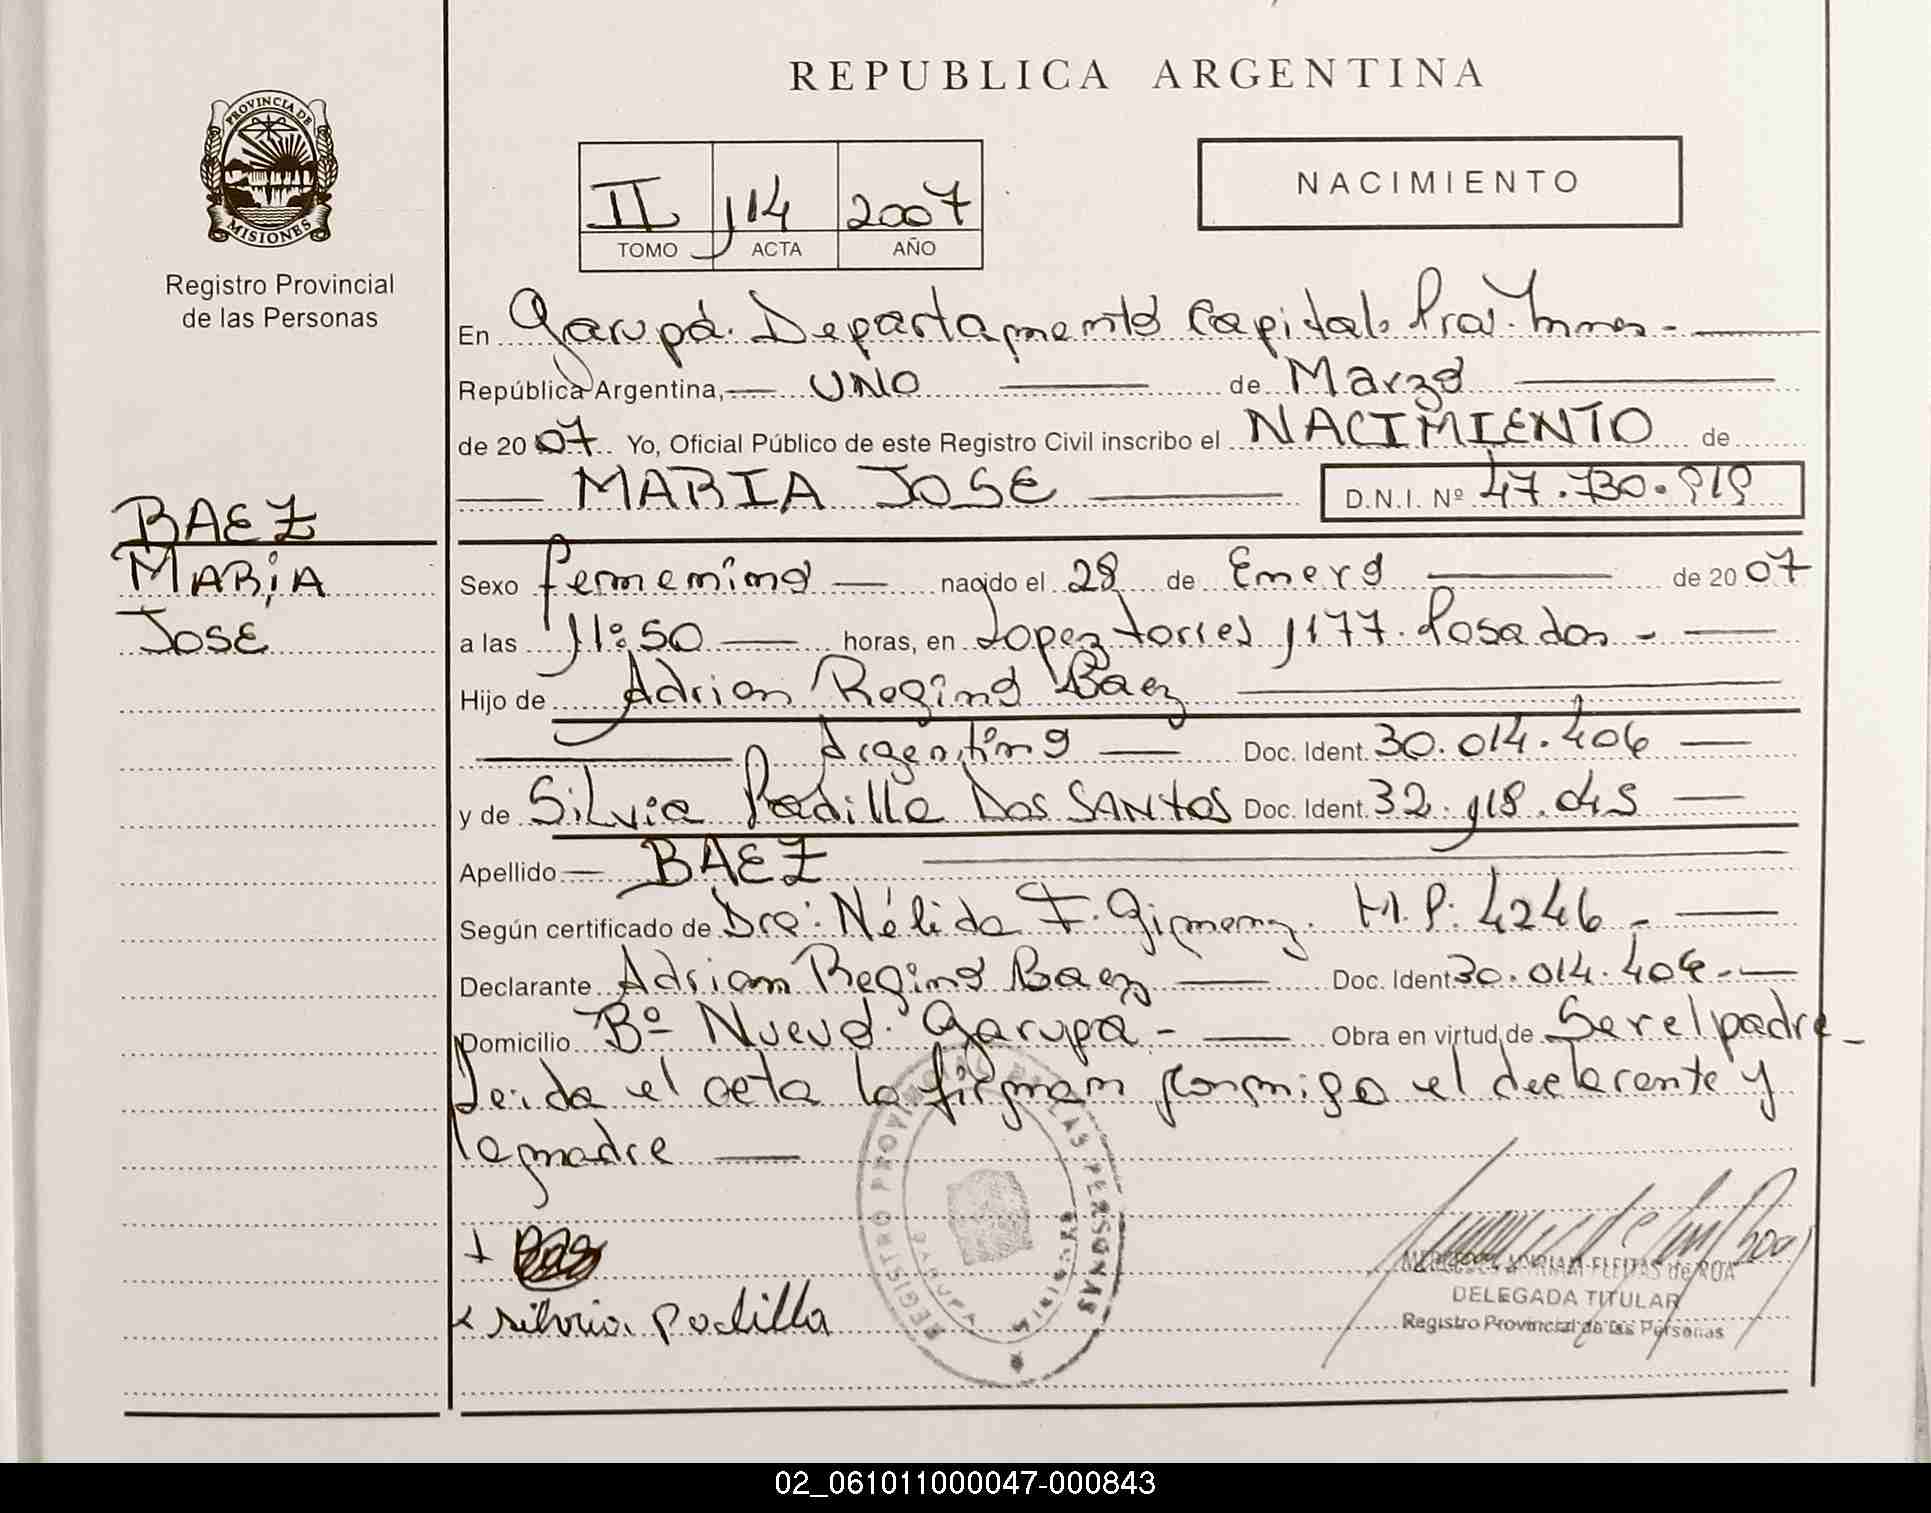 REPUBLICA ARGENTINA
PROVINCIA DE
MISIONES
Registro Provincial
de las Personas
II 114 2007
TOMO ACTA AÑO
NACIMIENTO
En Garupá. Departamento Capital. Prov.
República Argentina, UNO de Marzo
de 2007. Yo, Oficial Público de este Registro Civil inscribo el NACIMIENTO de
MARIA JOSE D.N.I. Nº 47.730.919
BAEZ
MARiA
JOSE
Sexo femenino nacido el 28 de Enero de 2007
a las 11:50 horas, en Lopez torres 1177. Posadas -
Hijo de Adrian Regino Baez
Argentino Doc. Ident. 30.014.406
y de Silvia Padilla Dos SANtos Doc. Ident. 32.918.045
Apellido BAEZ
Según certificado de Dra: Nélida F. Gimenez. M.P: 4246 -
Declarante Adrian Regino Baez Doc. Ident 30.014.406 -
Domicilio Bº Nuevo. Garupa - Obra en virtud de Ser el padre -
Leida el acta la firman conmigo el declarante y
la madre
REGISTRO PROVINCIAL DE LAS PERSONAS
GARUPA MISIONES
silvia padilla
MERCEDES MIRIAM FLEITAS de ROA
DELEGADA TITULAR
Registro Provincial de las Personas
02_061011000047-000843